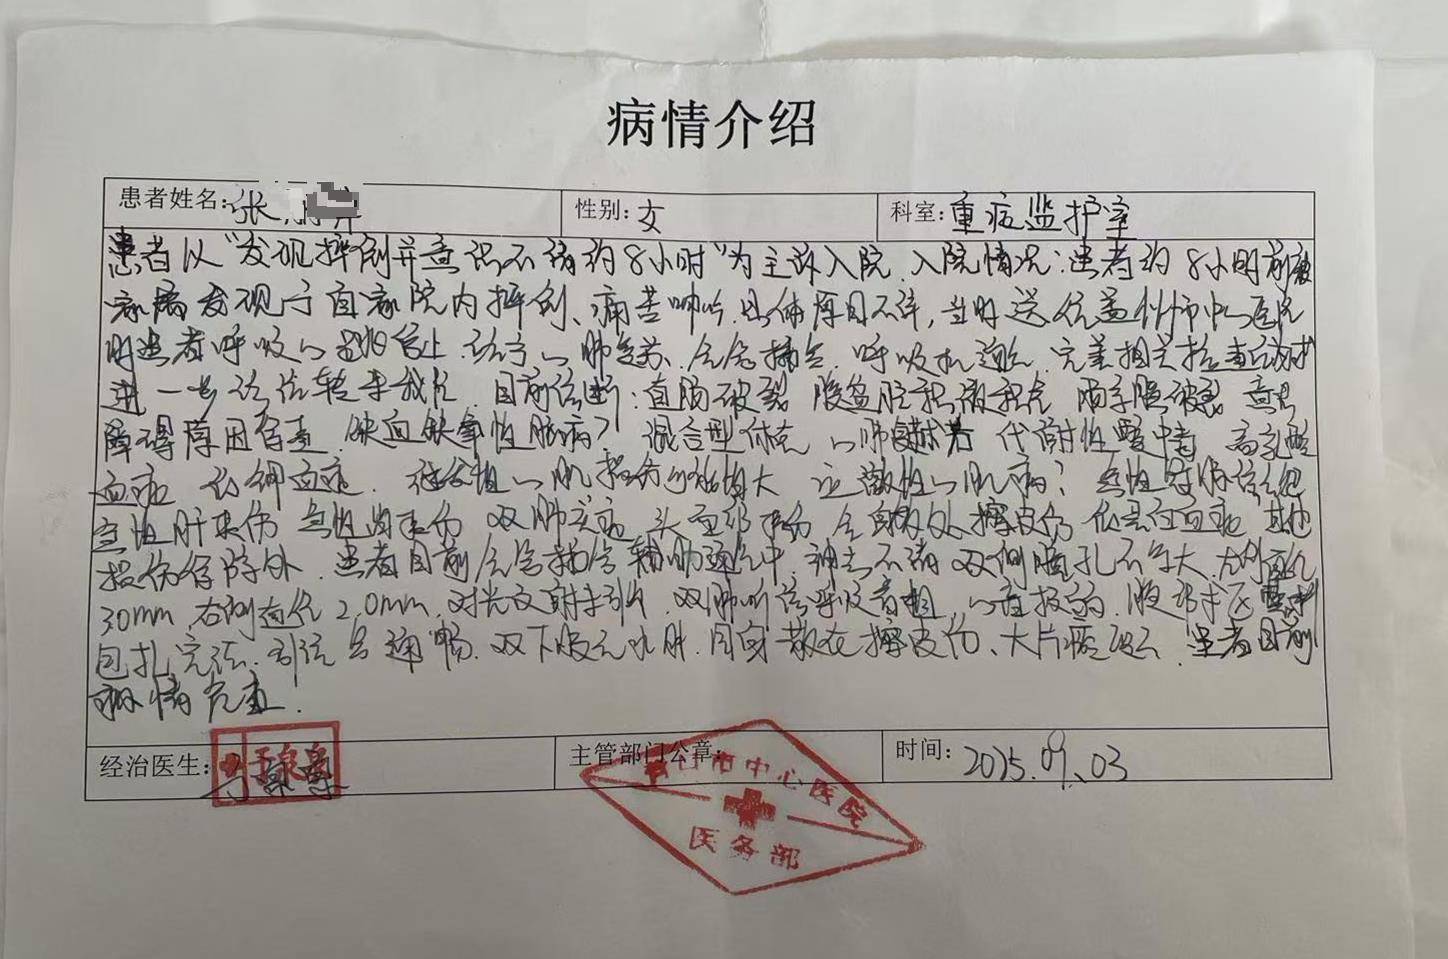 病情介绍
患者姓名：张
性别：女
科室：重症监护室
患者以“发现摔倒并意识不清约8小时”为主诉入院，入院情况：患者约8小时前被
家属发现于自家院内摔倒、痛苦呻吟，具体原因不详，当时送住盖州市中心医院
时患者呼吸心跳停止，给予心肺复苏、气管插管、呼吸机通气，完善相关检查
进一步诊治转来我院，目前诊断：直肠破裂 腹盆腔积液积气 意识
障碍原因待查 缺血缺氧性脑病？ 混合型休克 心肺复苏 代谢性酸中毒 高乳酸
血症 低钾血症 继发性心肌损伤 应激性心肌病？ 急性
急性肝损伤 急性肾损伤 双肺炎症 头面部外伤 全身多处擦皮伤 低蛋白血症 其他
损伤待除外，患者目前气管插管辅助通气中，神志不清 双侧瞳孔不等大，左侧直径
30mm，右侧直径2.0mm，对光反射未引出，双肺听诊呼吸音粗，心音报告，腹部术区
包扎完法，引流管通畅，双下肢无水肿，周身散在擦皮伤、大片瘀斑，患者目前
病情危重！
经治医生：
主管部门公章：
市中心医院
医务部
时间：2025.09.03